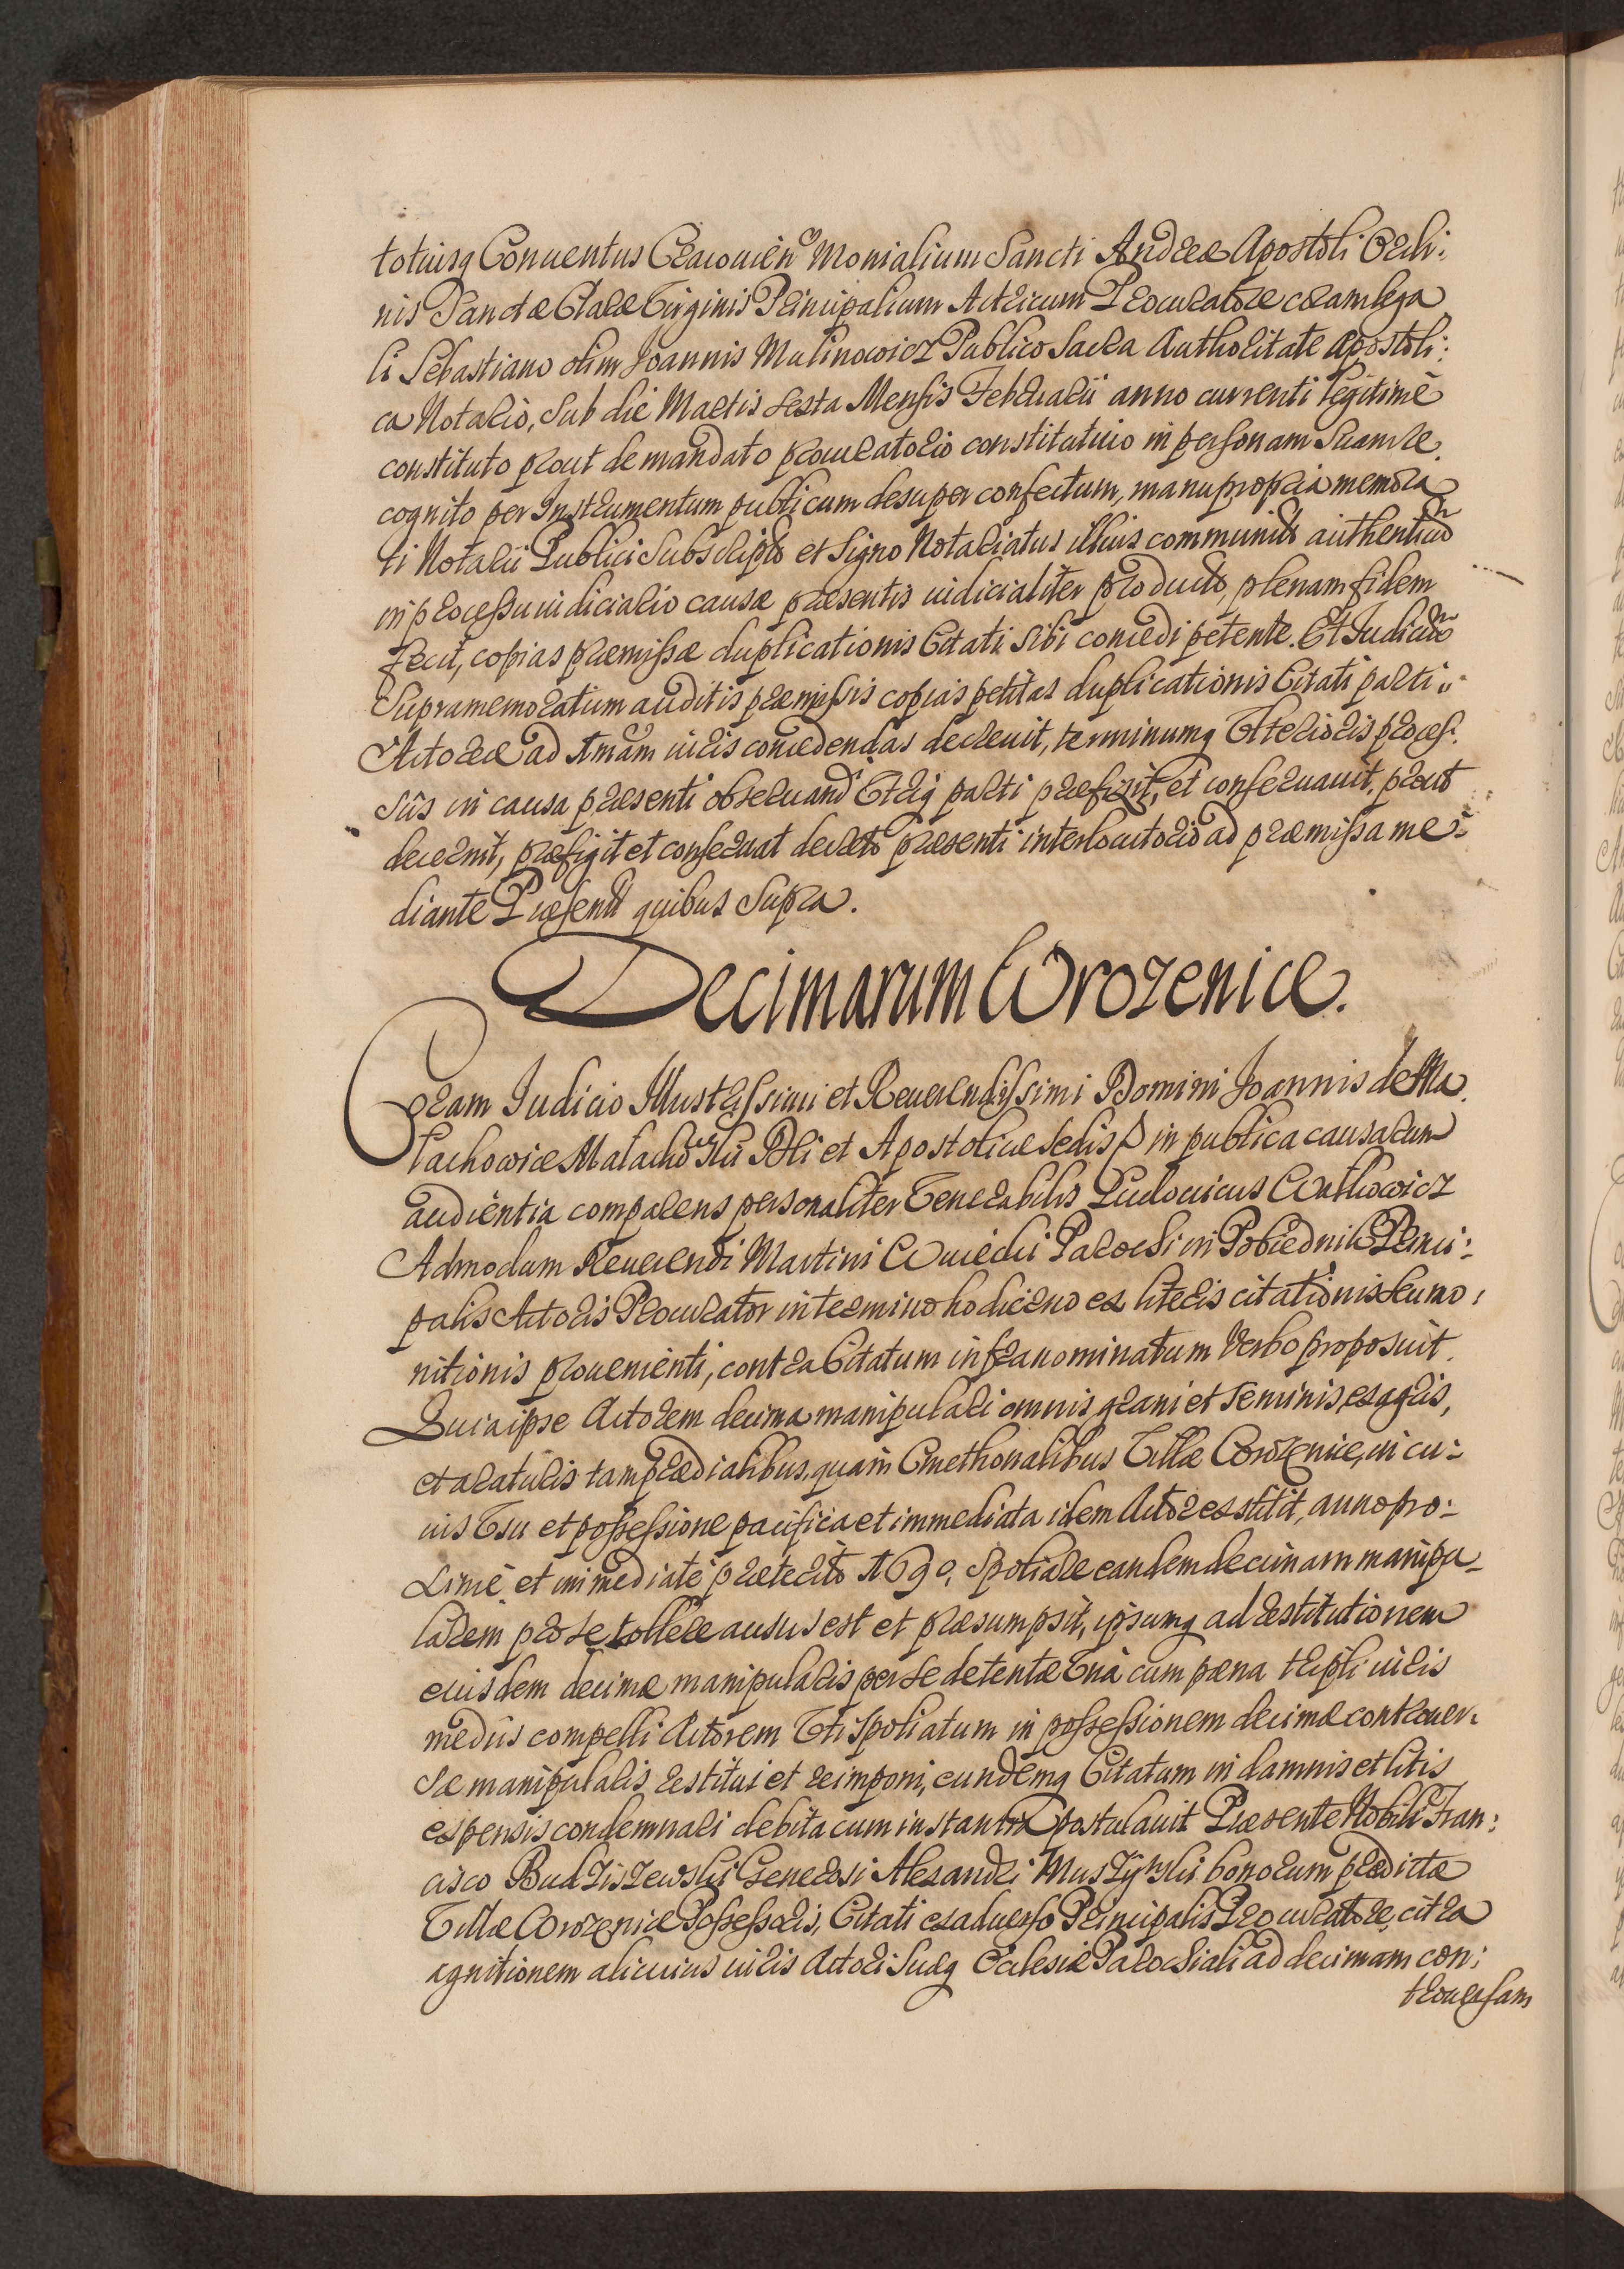 totiusq Conuentus Cracouien Monialium Sancti Andreæ Apostoli Ordi:
nis Sanctæ Claræ Virginis Principalium Actricum Procuratore coram lega
li Sebastiano olim Joannis Malinowicz Publico Sacra Authoritate Apostoli:
ca Notario, sub die Martis sexta Mensis Februarii anno currenti legitimè
constituto prout de mandato procuratorio constitutiuo in personam suam re.
cognito per Instrumentum publicum desuper confectum, manu propria memora
ti Notarii Publici subscripto et signo Notariatus illius communito authentico
in processu iudiciario causæ præsentis iudicialiter producto, plenam fidem
fecit, copias præmissæ duplicationis Citati sibi concedi petente. Et Iudicium
Supramemoratum auditis præmissis copias petitas duplicationis Citati parti
Actoreæ ad 1mam iuris concedendas decreuit, terminumq Vlterioris proces.
sûs in causa præsenti obseruand Vtriq parti præfixit, et conseruauit, prout
decernit, præfigit et conseruat decreto præsenti interlocutorio ad præmissa me:
diante Præsentt quibus Supra.
Decimarum Wrozenice.
Coram Iudicio Illustrissimi et Reuerendissimi Domini Joannis de Ma
łachowice Małachowski Dei et Apostolicæ Sedis in publica causarum
audientia comparens personaliter Venerabilis Ludouicus
Admodum Reuerendi Martini Parochi in Pobiednik Princi:
palis Actoris Procurator in termino hodierno ex literis citationis seu mo:
nitionis prouenienti, contra Citatum infranominatum Verbo proposuit.
Quia ipse Actorem decima manipulari omnis grani et seminis, ex agris,
et araturis tam prædialibus, quàm Cmethonalibus Villæ Wrozenice, in cu:
ius Vsu et possessione pacifica et immediata idem Actor exstitit, anno pro:
ximè et immediatè præterito 1690, spoliare eandem decimam manipu
larem pro se tollere ausus est et præsumpsit, ipsumq ad restitutionem
eiusdem decimæ manipularis per se detentæ Vnà cum pæna tripli iuris
mediis compelli Actorem Vti spoliatum in possessionem decimæ controuer.
sæ manipularis restitui et reimponi, eundemq Citatum in damnis et litis
expensis condemnari debita cum instantia postulauit Præsente Nobili Fran:
cisco Budziszewski Generosi Alexandri bonorum prædictæ
Villæ Wrozenice Possessoris, Citati ex aduerso Principalis Procuratore, citra
agnitionem alicuius iuris Actori suæq Ecclesiæ Parochiali ad decimam con:
trouersam